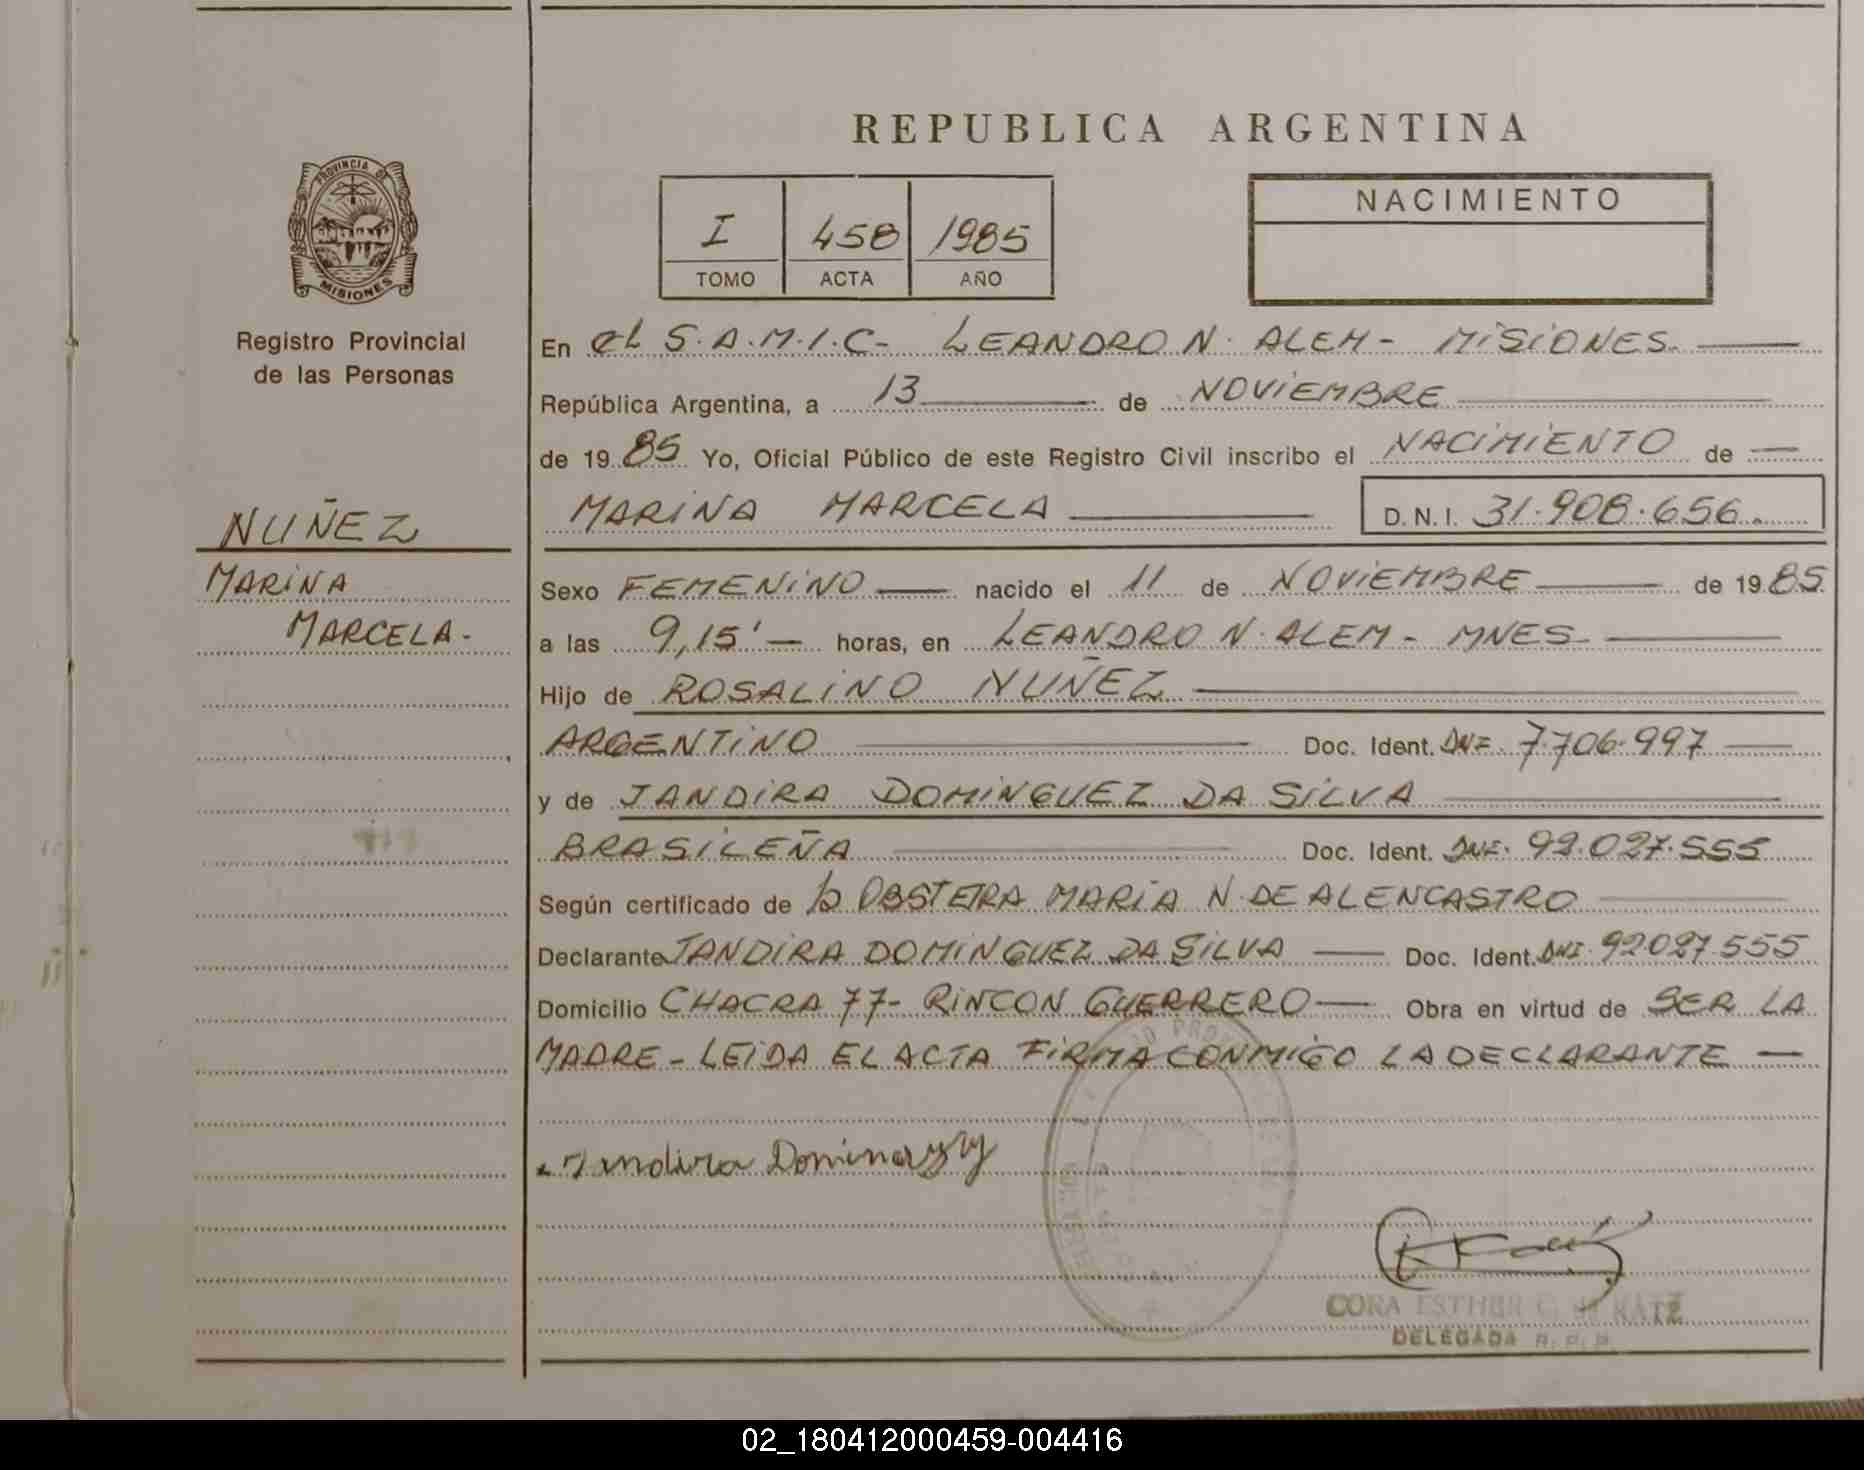 REPUBLICA ARGENTINA
PROVINCIA DE
MISIONES
I 458 1985
TOMO ACTA AÑO
NACIMIENTO
Registro Provincial
de las Personas
En el S.A.M.I.C- LEANDRO N. ALEM- MISIONES.
República Argentina, a 13 de NOVIEMBRE
de 19 85 Yo, Oficial Público de este Registro Civil inscribo el NACIMIENTO de
MARINA MARCELA D.N.I. 31.908.656.
NUÑEZ
MARINA
MARCELA.
Sexo FEMENINO nacido el 11 de NOVIEMBRE de 19 85
a las 9,15' horas, en LEANDRO N. ALEM - MNES
Hijo de ROSALINO NUÑEZ
ARGENTINO Doc. Ident. DNI. 7.706.997
y de JANDIRA DOMINGUEZ DA SILVA
BRASILEÑA Doc. Ident. DNI. 92.027.555
Según certificado de la OBSTETRA MARIA N. DE ALENCASTRO
Declarante JANDIRA DOMINGUEZ DA SILVA Doc. Ident. DNI. 92027.555
Domicilio CHACRA 77- RINCON GUERRERO Obra en virtud de SER LA
MADRE - LEIDA EL ACTA FIRMA CONMIGO LA DECLARANTE
Jandira
CORA ESTHER G. de KATZ
DELEGADA R.P.P.
02_180412000459-004416